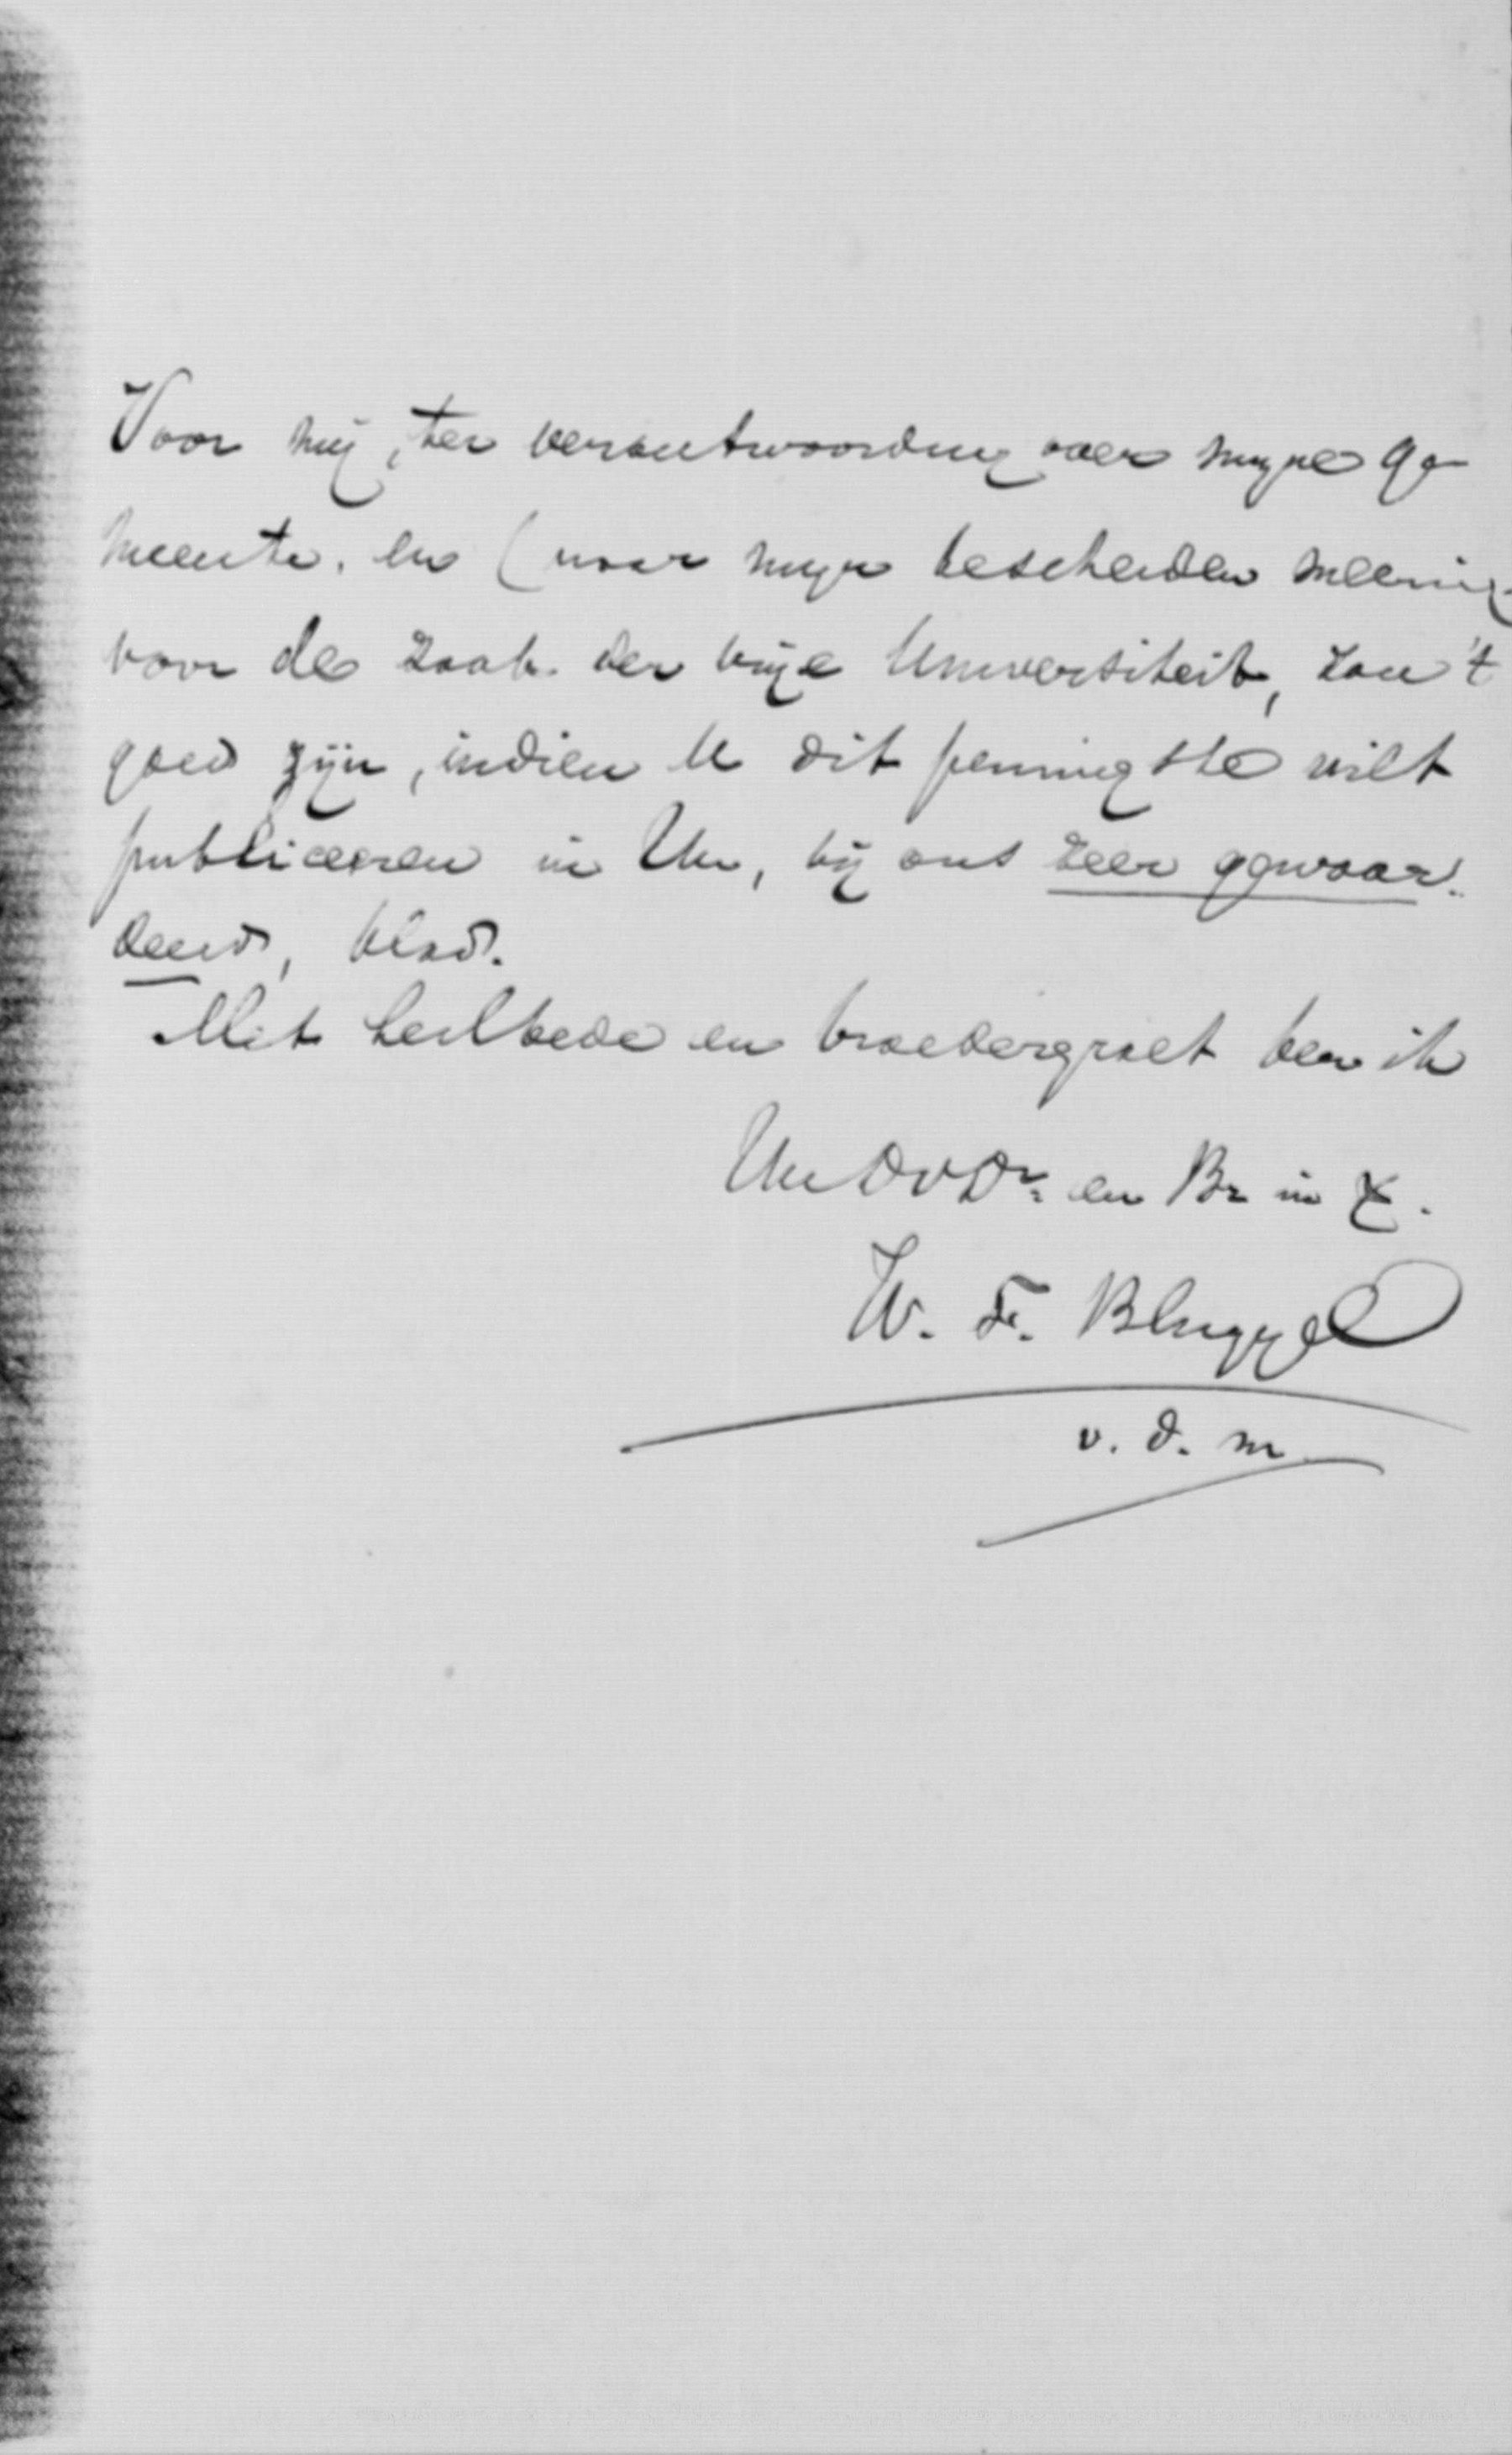 Voor mij, ter verantwoording voor mijne ge-
meente. en (naar mijn bescheiden meening
voor de zaak der vrije Universiteit, zou 't
goed zijn, indien U dit penningske wilt
publiceeren in Uw, bij ons zeer gewaar-
deerd, blad.
Met heilbede en broedergroet ben ik
Uw DvDr. en Br in X.
W. F.
v. d. m